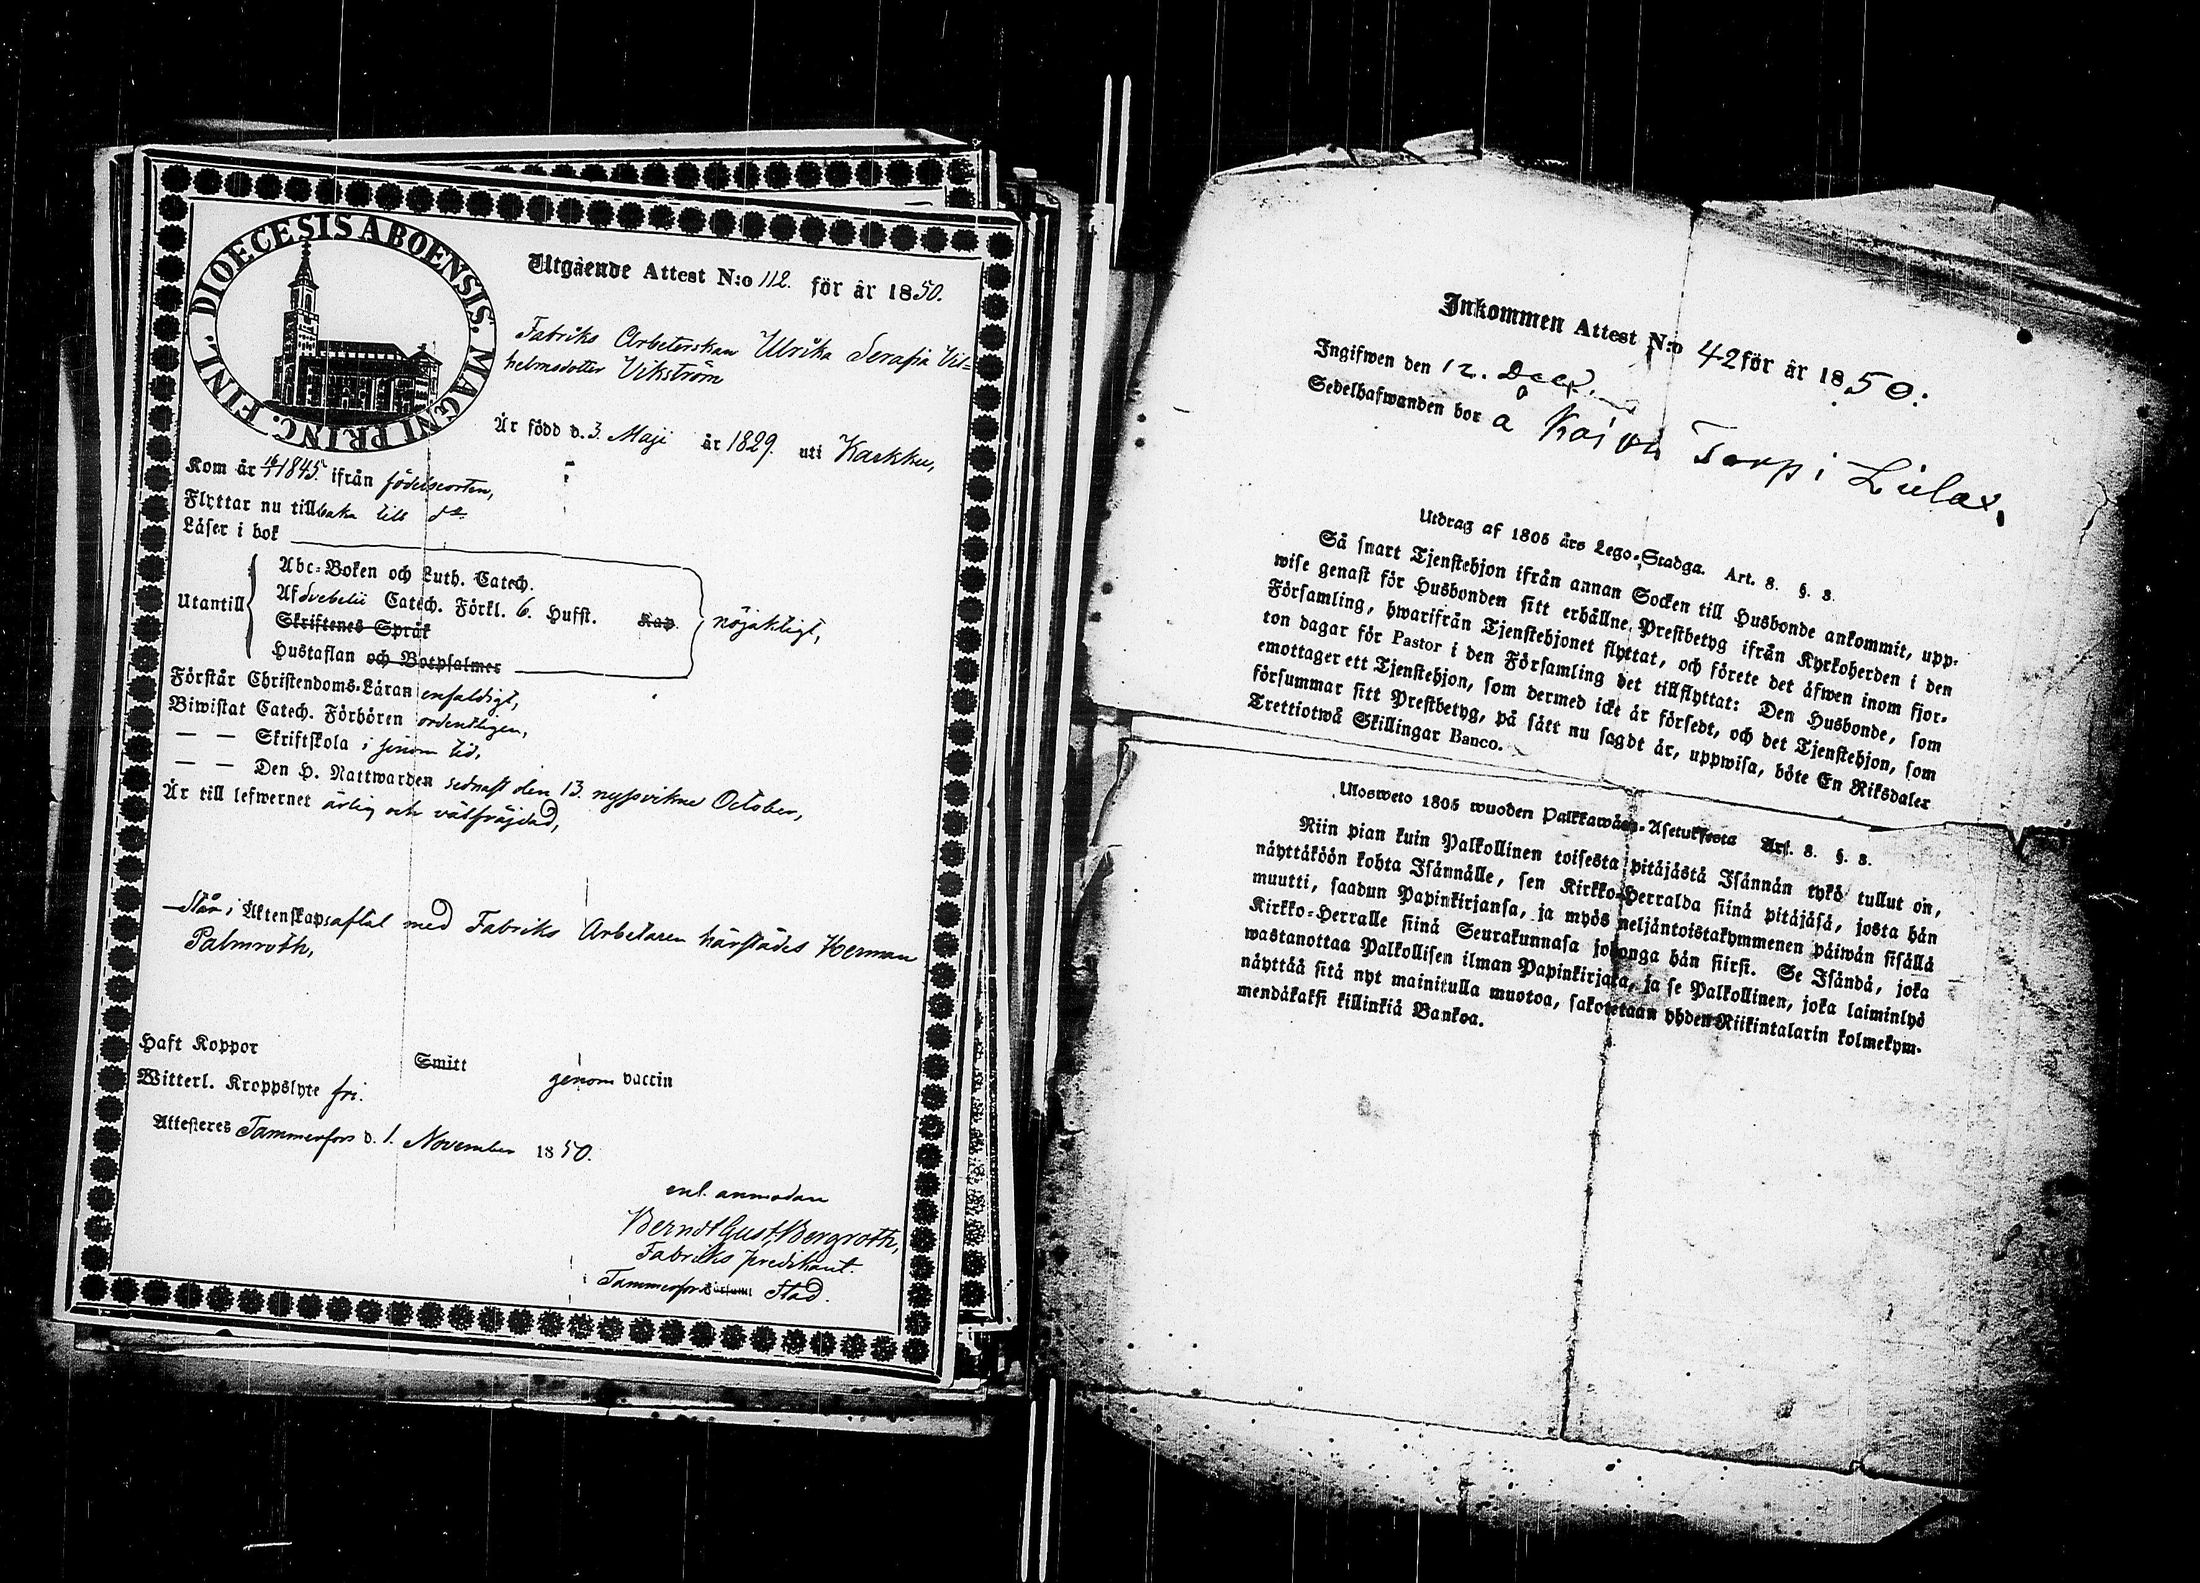 DIOECESIS ABOENSIS. MAGNI PRINC. FINL.
Utgående Attest N:o 112. för år 1850.
Fabriks Arbeterskan Ulrika Serafia Vil=
helmsdotter Vikström
Är född d. 3. Maji år 1829. uti Karkku,
Kom år 1845. ifrån födelseorten,
Flyttar nu tillbaka till do
Läser i bok
Utantill
Abc-Boken och Luth. Catech.
Af Svebelii Catech. Förkl. 6. Hufst. Kap.
Skriftenes Språk
Hustaflan och Botpsalmer
nöjaktigt,
Förstår Christendoms-Läran enfaldigt,
Biwistat Catech. Förhören ordentligen,
— — Skriftskola i sinom tid,
— — Den H. Nattwarden sednast den 13. nyssvikne October,
Är till lefwernet ärlig och välfräjdad,
Står i Äktenskapsaftal med Fabriks Arbetaren härstädes Herman
Palmroth,
Haft Koppor Smitt genom vaccin
Witterl. Kroppslyte fri.
Attesteres Tammerfors d. 1. November 1850.
enl. anmodan
Berndt Gust. Bergroth,
Fabriks predikant.
Tammerfors Stad.
Inkommen Attest N:o 42 för år 1850.
Ingifwen den 12. Dec.
Sedelhafwanden bor å Koivu Torp i
Utdrag af 1805 års Lego-Stadga. Art. 8. §. 3.
Så snart Tjenstehjon ifrån annan Socken till Husbonde ankommit, upp-
wise genast för Husbonden sitt erhållne Prestbetyg ifrån Kyrkoherden i den
Församling, hwarifrån Tjenstehjonet flyttat, och förete det äfwen inom fjor-
ton dagar för Pastor i den Församling det tillflyttat: Den Husbonde, som
emottager ett Tjenstehjon, som dermed icke är försedt, och det Tjenstehjon, som
försummar sitt Prestbetyg, på sätt nu sagdt är, uppwisa, böte En Riksdaler
Trettiotwå Skillingar Banco.
Ulosweto 1805 wuoden Palkkawäen-Asetuksesta Art. 8. §. 3.
Niin pian kuin Palkollinen toisesta pitäjästä Isännän tykö tullut on,
näyttäköön kohta Isännälle, sen Kirkko-Herralda siinä pitäjäsä, josta hän
muutti, saadun Papinkirjansa, ja myös neljäntoistakymmenen päiwän sisällä
Kirkko-Herralle siinä Seurakunnasa johonga hän siirsi. Se Isändä, joka
wastanottaa Palkollisen ilman Papinkirjata, ja se Palkollinen, joka laiminlyö
näyttää sitä nyt mainitulla muotoa, sakotetaan yhden Riikintalarin kolmekym-
mendäkaksi killinkiä Bankoa.